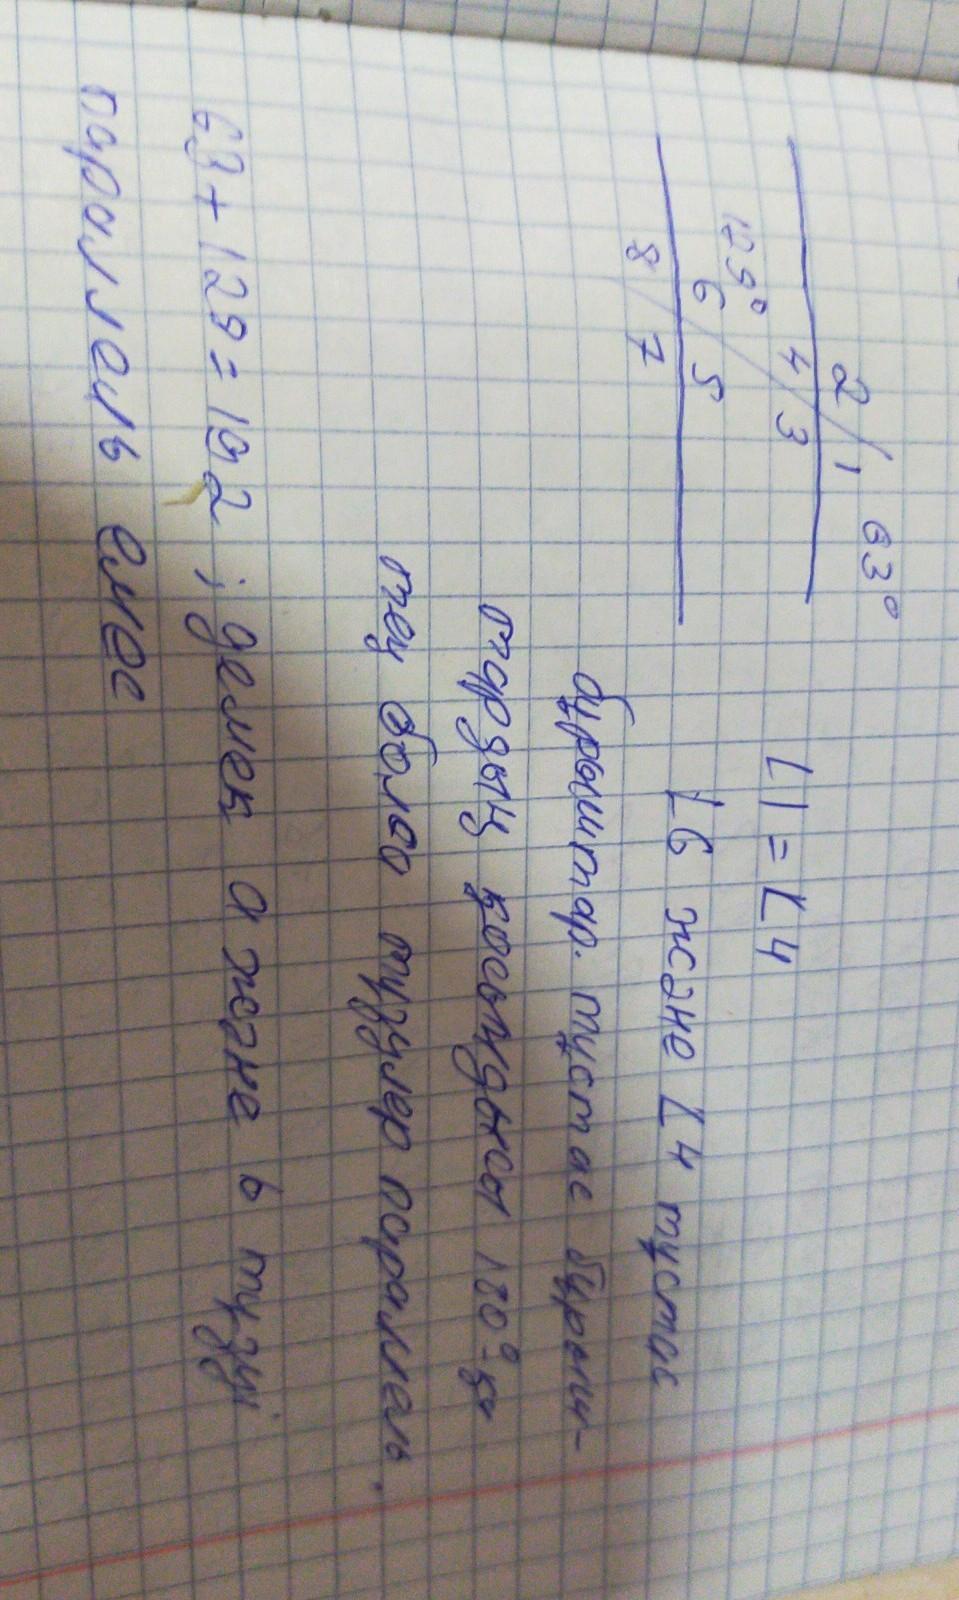 2 / 1 63°
4 / 3
129°
6 / 5
8 / 7
∠1 = ∠4
∠6 және ∠4 тұстас
бұрыштар. тұстас бұрыш-
тардың қосындысы 180°-қа
тең болса түзулер параллель.
63 + 129 = 192 ; демек а және b түзуі
параллель емес